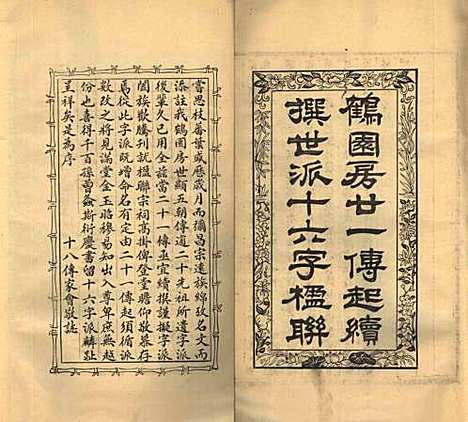 鶴園房廿一傳起續
撰世派十六字楹聯
嘗思枝蕃葉盛應歲月而彌昌宗遠族綿攷名文而
添註我鶴園房世顯五朝傳通二十先祖所遺字派
後輩久已用全茲當二十一傳亟宜續撰謹擬字派
闔族歡騰刊就楹聯宗祠高掛俾登堂瞻仰敬慕存
爲從此字派既增命名有定由二十一傳起須循派
數改之將見滿堂金玉昭穆易知出入尊卑庶無越
份也喜得千百孫曾螽斯衍慶書留十六字派麟趾
呈祥矣是爲序
十八傳家會敬誌